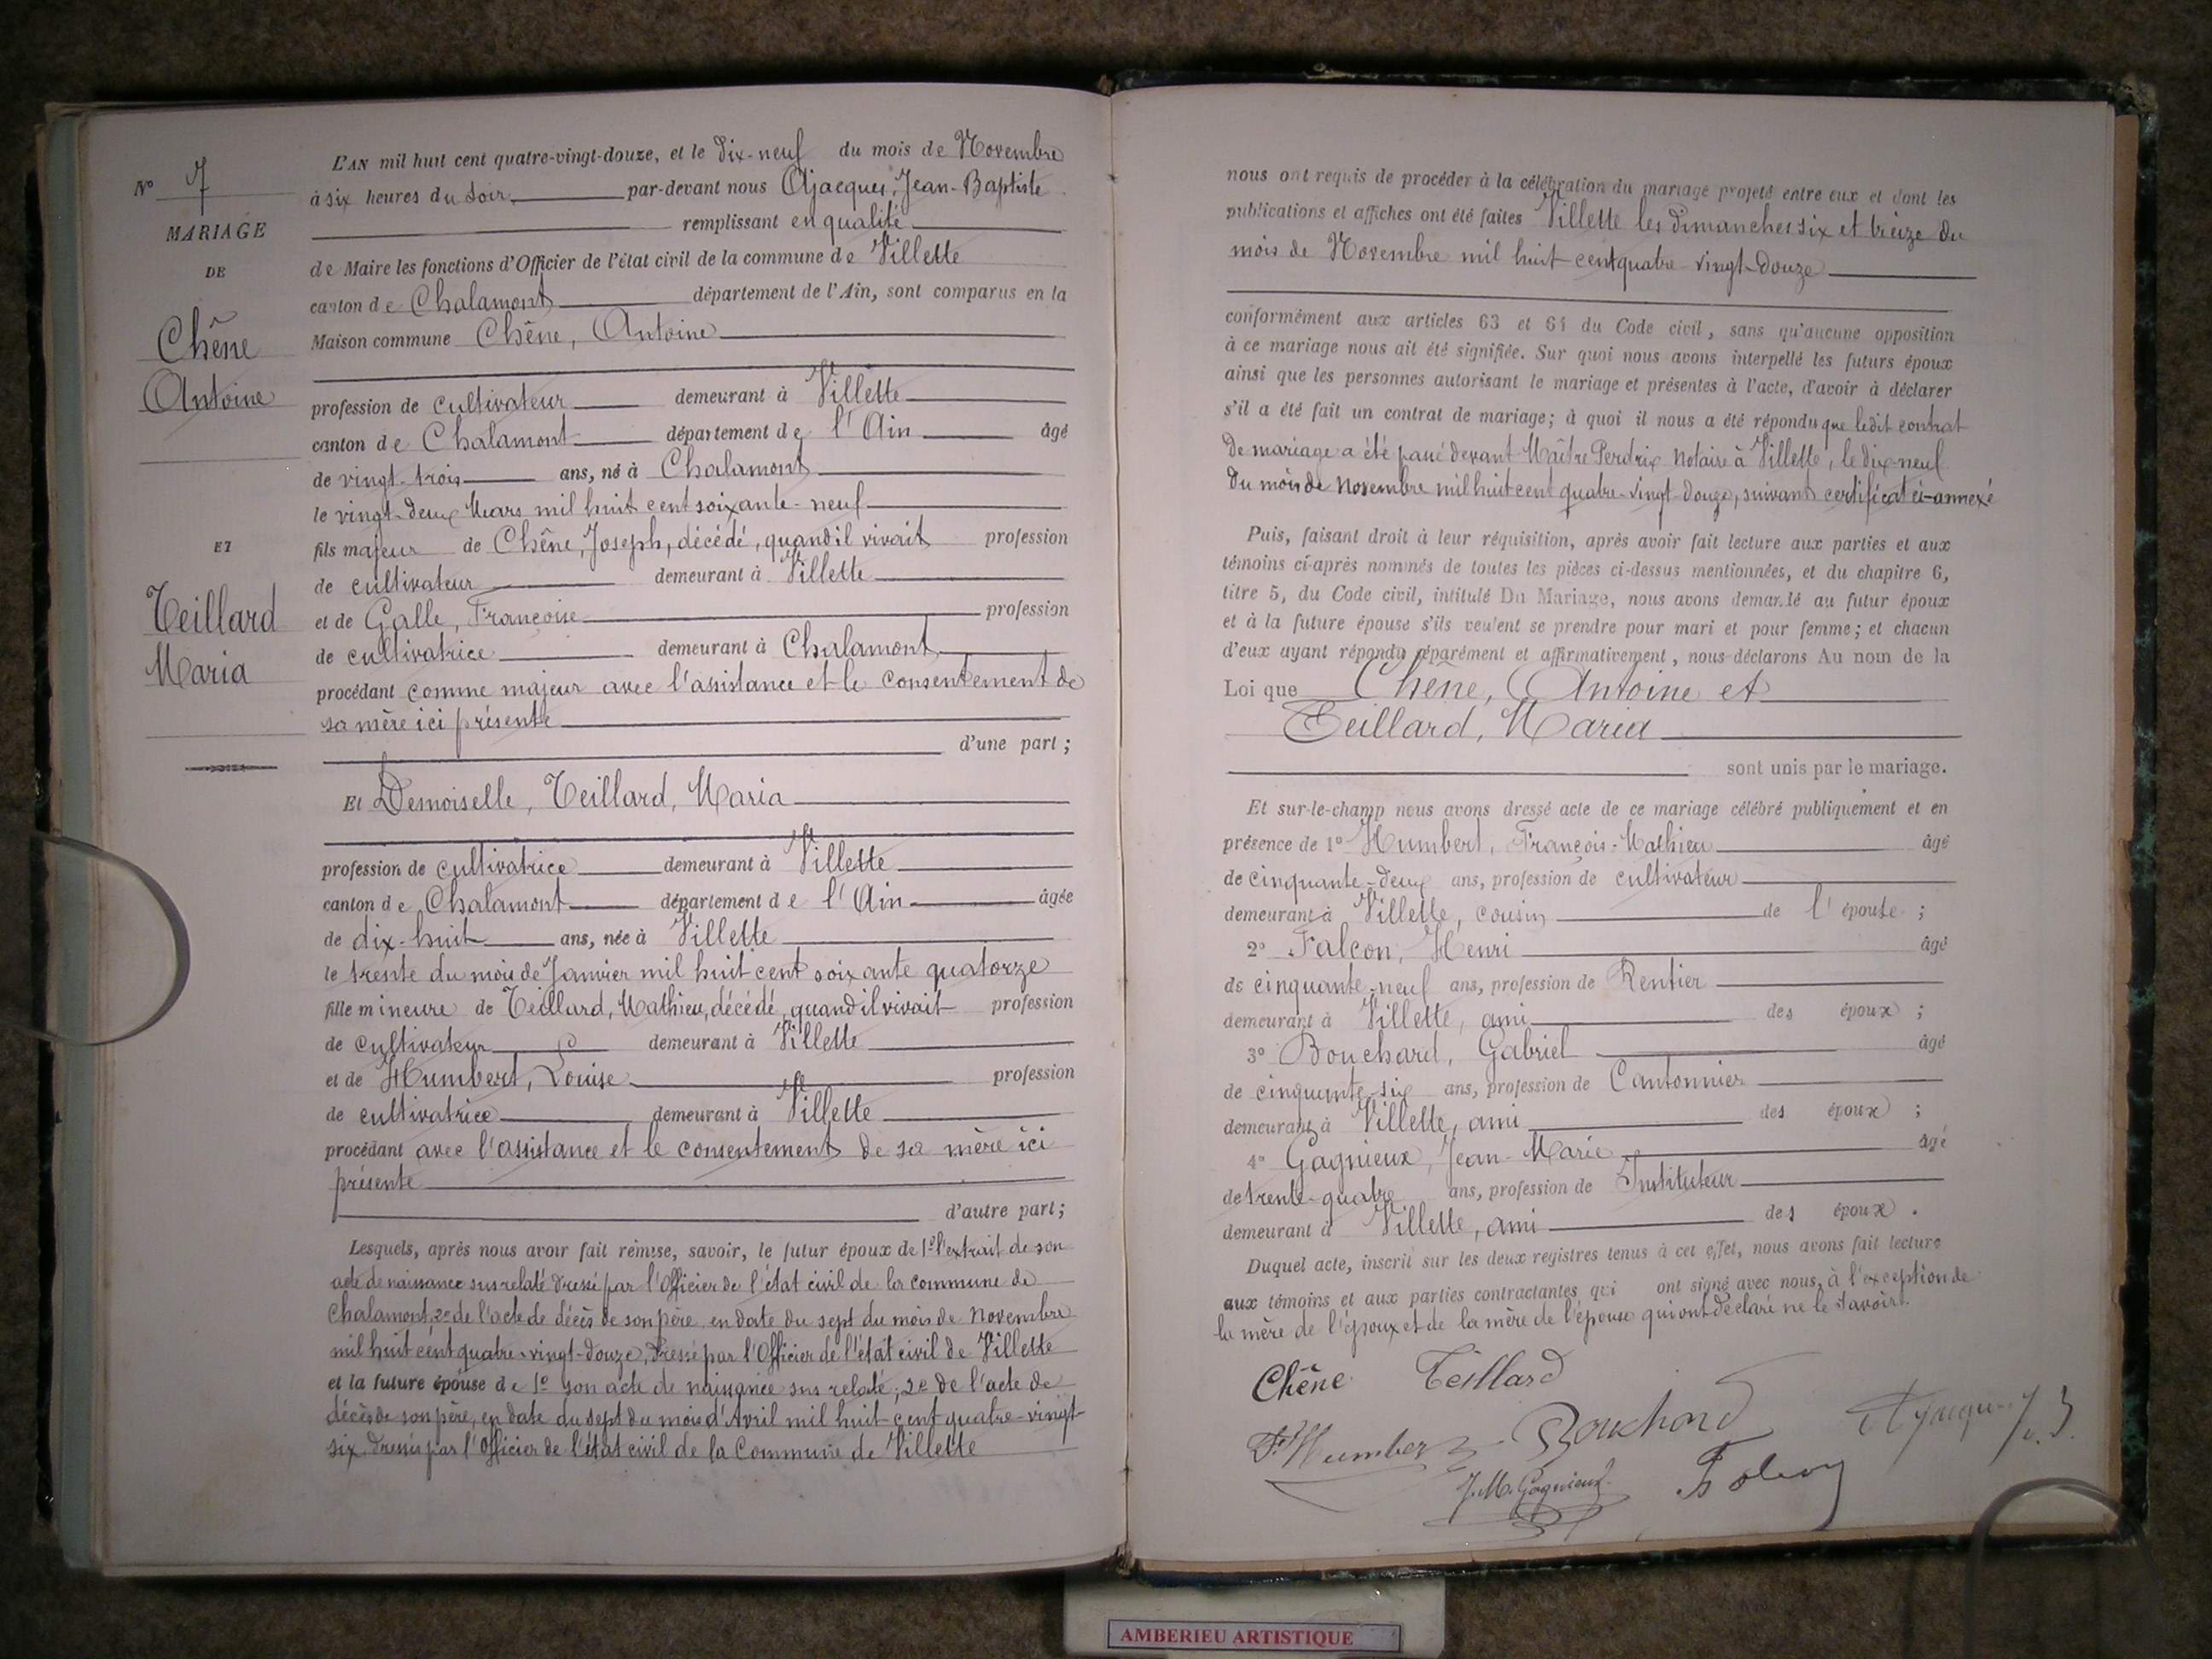 N° 7
MARIAGE
DE
Chêne
Antoine
ET
Teillard
Maria
L'AN mil huit cent quatre-vingt-douze, et le Dix-neuf du mois de Novembre
à six heures du soir, par-devant nous Ajacques, Jean-Baptiste
remplissant en qualité
de Maire les fonctions d'Officier de l'état civil de la commune de Villette
canton de Chalamont département de l'Ain, sont comparus en la
Maison commune Chêne, Antoine
profession de cultivateur demeurant à Villette
canton de Chalamont département de l'Ain âgé
de vingt-trois ans, né à Chalamont
le vingt-deux Mars mil huit cent soixante-neuf
fils majeur de Chêne, Joseph, décédé, quand il vivait profession
de cultivateur demeurant à Villette
et de Galle, Françoise profession
de cultivatrice demeurant à Chalamont
procédant comme majeur avec l'assistance et le consentement de
sa mère ici présente
d'une part ;
Et Demoiselle, Teillard, Maria
profession de cultivatrice demeurant à Villette
canton de Chalamont département de l'Ain âgée
de dix-huit ans, née à Villette
le trente du mois de Janvier mil huit cent soixante quatorze
fille mineure de Teillard, Mathieu, décédé, quand il vivait profession
de cultivateur demeurant à Villette
et de Humbert, Louise profession
de cultivatrice demeurant à Villette
procédant avec l'assistance et le consentement de sa mère ici
présente
d'autre part ;
Lesquels, après nous avoir fait remise, savoir, le futur époux de 1° l'extrait de son
acte de naissance susrelaté dressé par l'Officier de l'état civil de la commune de
Chalamont, 2° de l'acte de décès de son père, en date du sept du mois de Novembre
mil huit cent quatre-vingt-douze, dressé par l'Officier de l'état civil de Villette
et la future épouse de 1° son acte de naissance sus relaté ; 2° de l'acte de
décès de son père, en date du sept du mois d'Avril mil huit cent quatre-vingt
six, dressé par l'Officier de l'état civil de la Commune de Villette
nous ont requis de procéder à la célébration du mariage projeté entre eux et dont les
publications et affiches ont été faites Villette les Dimanches six et treize du
mois de Novembre mil huit cent quatre-vingt-douze
conformément aux articles 63 et 64 du Code civil, sans qu'aucune opposition
à ce mariage nous ait été signifiée. Sur quoi nous avons interpellé les futurs époux
ainsi que les personnes autorisant le mariage et présentes à l'acte, d'avoir à déclarer
s'il a été fait un contrat de mariage ; à quoi il nous a été répondu que ledit contrat
de mariage a été passé devant Maître Perdrix Notaire à Villette, le dix-neuf
du mois de Novembre mil huit cent quatre-vingt-douze, suivant certificat ci-annexé
Puis, faisant droit à leur réquisition, après avoir fait lecture aux parties et aux
témoins ci-après nommés de toutes les pièces ci-dessus mentionnées, et du chapitre 6,
titre 5, du Code civil, intitulé Du Mariage, nous avons demandé au futur époux
et à la future épouse s'ils veulent se prendre pour mari et pour femme ; et chacun
d'eux ayant répondu séparément et affirmativement, nous déclarons Au nom de la
Loi que Chêne, Antoine et
Teillard, Maria
sont unis par le mariage.
Et sur-le-champ nous avons dressé acte de ce mariage célébré publiquement et en
présence de 1° Humbert, François-Mathieu âgé
de cinquante-deux ans, profession de cultivateur
demeurant à Villette, cousin de l'épouse ;
2° Falcon, Henri âgé
de cinquante-neuf ans, profession de Rentier
demeurant à Villette, ami des époux ;
3° Bouchard, Gabriel âgé
de cinquante-six ans, profession de Cantonnier
demeurant à Villette, ami des époux ;
4° Gagnieux, Jean-Marie âgé
de trente-quatre ans, profession de Instituteur
demeurant à Villette, ami des époux.
Duquel acte, inscrit sur les deux registres tenus à cet effet, nous avons fait lecture
aux témoins et aux parties contractantes qui ont signé avec nous, à l'exception de
la mère de l'époux et de la mère de l'épouse qui ont déclaré ne le savoir.
Chêne Teillard
Fs Humbert Bouchard Ajacques J. B.
J.M. Gagnieux Falcon
AMBERIEU ARTISTIQUE